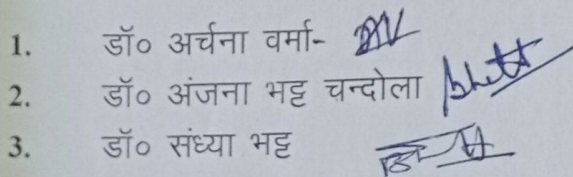 1. डॉ० अर्चना वर्मा-
2. डॉ० अंजना भट्ट चन्दोला
3. डॉ० संध्या भट्ट